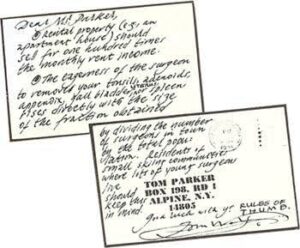 Dear Mr. Parker,
① Rental property (e.g., an
apartment house) should
sell for one hundred times
the monthly rent income.
② The eagerness of the surgeon
to removed your tonsils, adenoids,
appendix, gall bladder, uterus, or spleen
rises directly with the size
of the fraction obtained
by dividing the number
of surgeons in town
in the total popu-
lation. Residents of
small skiing communities
where lots of young surgeons
live
should
keep this
in mind.
TOM PARKER
BOX 198, RD 1
ALPINE, N.Y.
14805
Good luck with yr. RULES OF
THUMB.